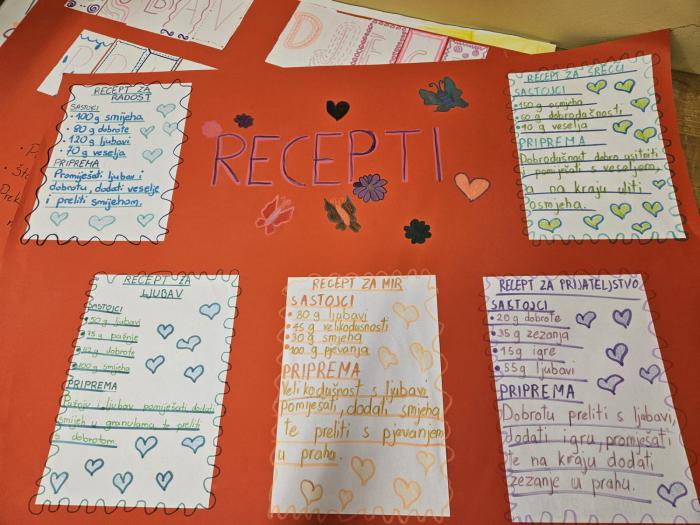 RECEPTI
RECEPT ZA
RADOST
SASTOJCI
• 100 g smijeha
• 80 g dobrote
• 120 g ljubavi
• 70 g veselja
PRIPREMA
Promiješati ljubav i
dobrotu, dodati veselje
i preliti smijehom.
RECEPT ZA SREĆU
SASTOJCI
• 150 g osmjeha
• 60 g dobrodušnosti
• 90 g veselja
PRIPREMA
Dobrodušnost dobro usitniti
pomiješati s veseljem,
a na kraju uliti
osmjeha.
RECEPT ZA
LJUBAV
SASTOJCI
• 50 g ljubavi
• 75 g pažnje
• 82 g dobrote
• 100 g smijeha
PRIPREMA
Pažnju i ljubav pomiješati, dodati
smijeh u granulama te preliti
s dobrotom.
RECEPT ZA MIR
SASTOJCI
• 80 g ljubavi
• 45 g velikodušnosti
• 30 g smjeha
• 100 g pjevanja
PRIPREMA
Velikodušnost s ljubavi
pomiješati, dodati smjeha
te preliti s pjevanjem
u praha.
RECEPT ZA PRIJATELJSTVO
SASTOJCI
• 20 g dobrote
• 35 g zezanja
• 15 g igre
• 55 g ljubavi
PRIPREMA
Dobrotu preliti s ljubavi,
dodati igru, promješati
te na kraju dodati
zezanje u prahu.